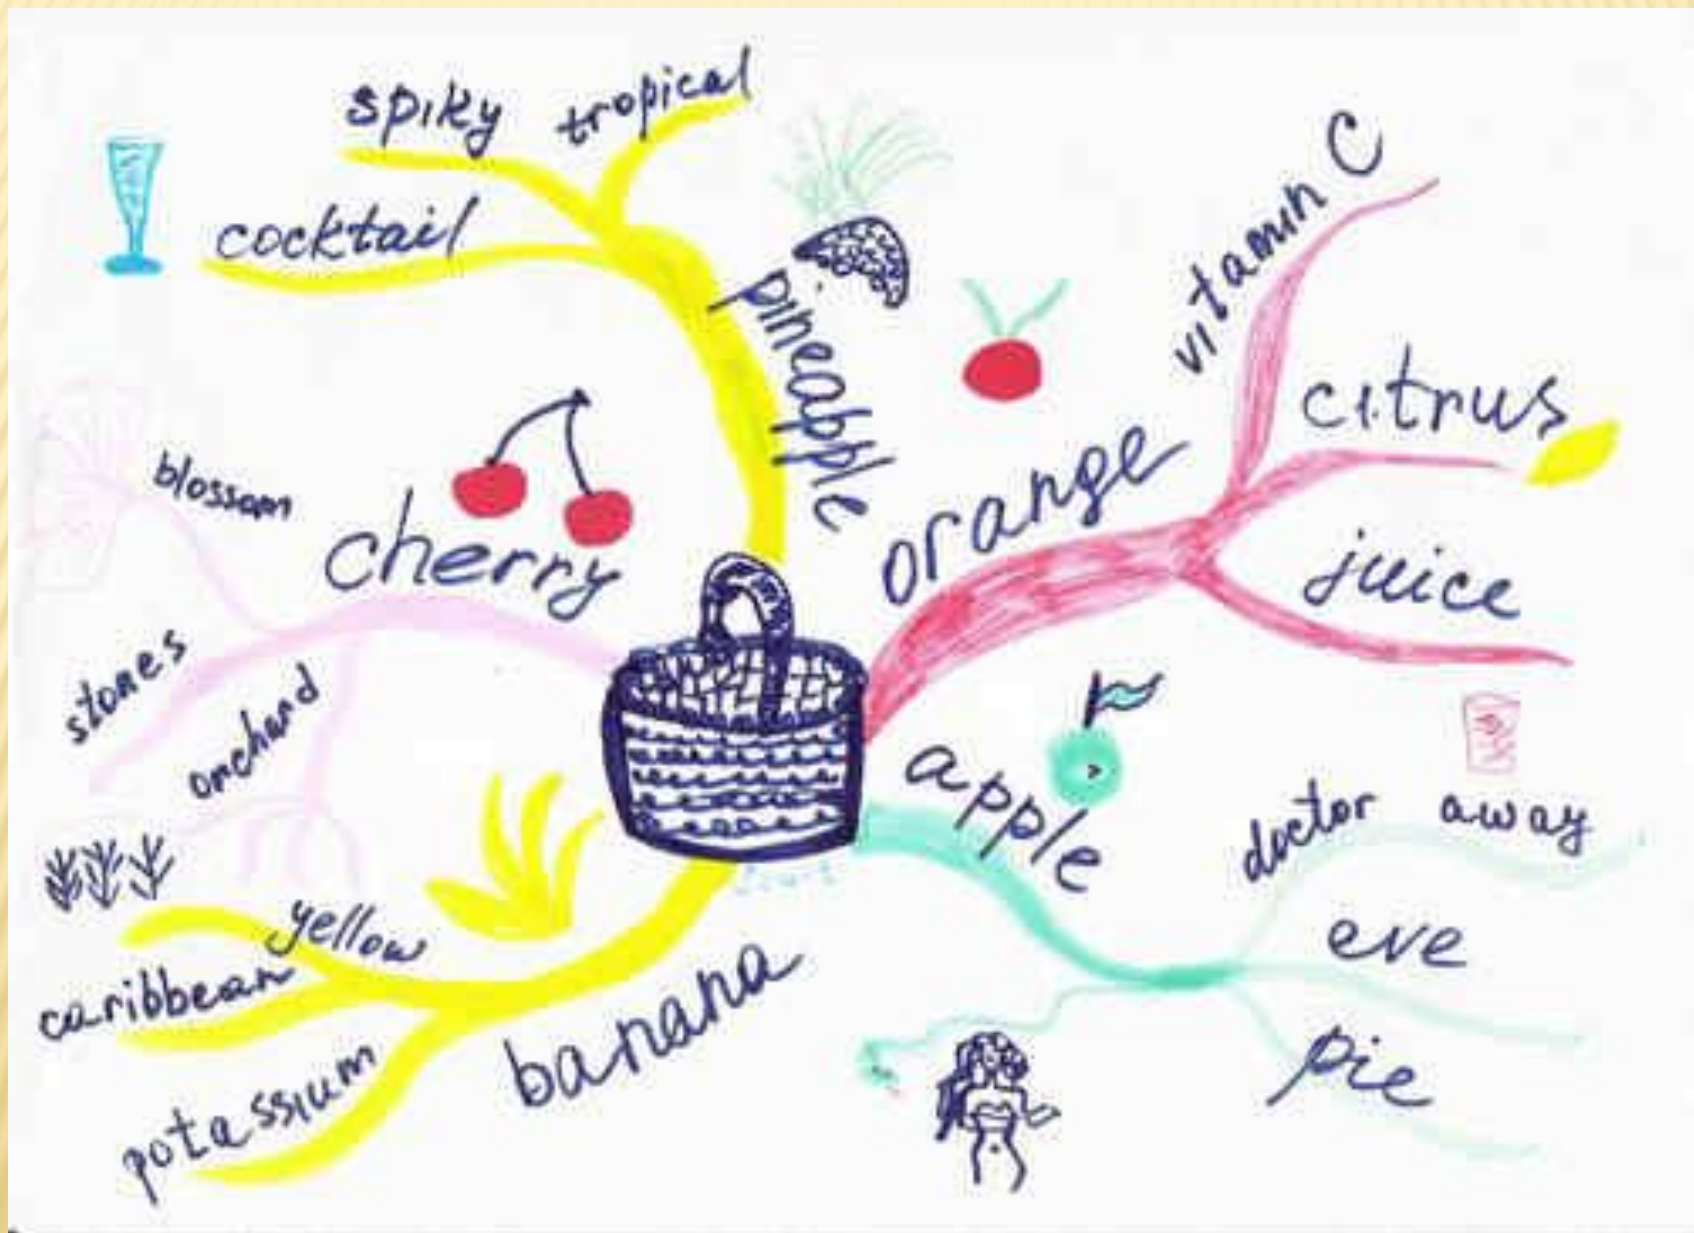 spiky
tropical
cocktail
pineapple
vitamin C
citrus
orange
juice
blossom
cherry
stones
orchard
apple
doctor away
eve
pie
yellow
caribbean
potassium
banana